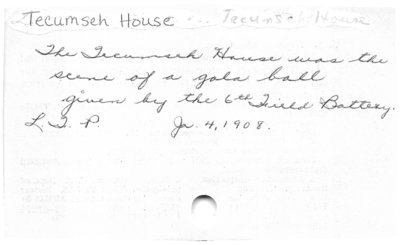 Tecumseh House ... Tecumseh House
The Tecumseh House was the
scene of a gala ball
given by the 6th Field Battery.
L. F. P. Ja. 4, 1908.